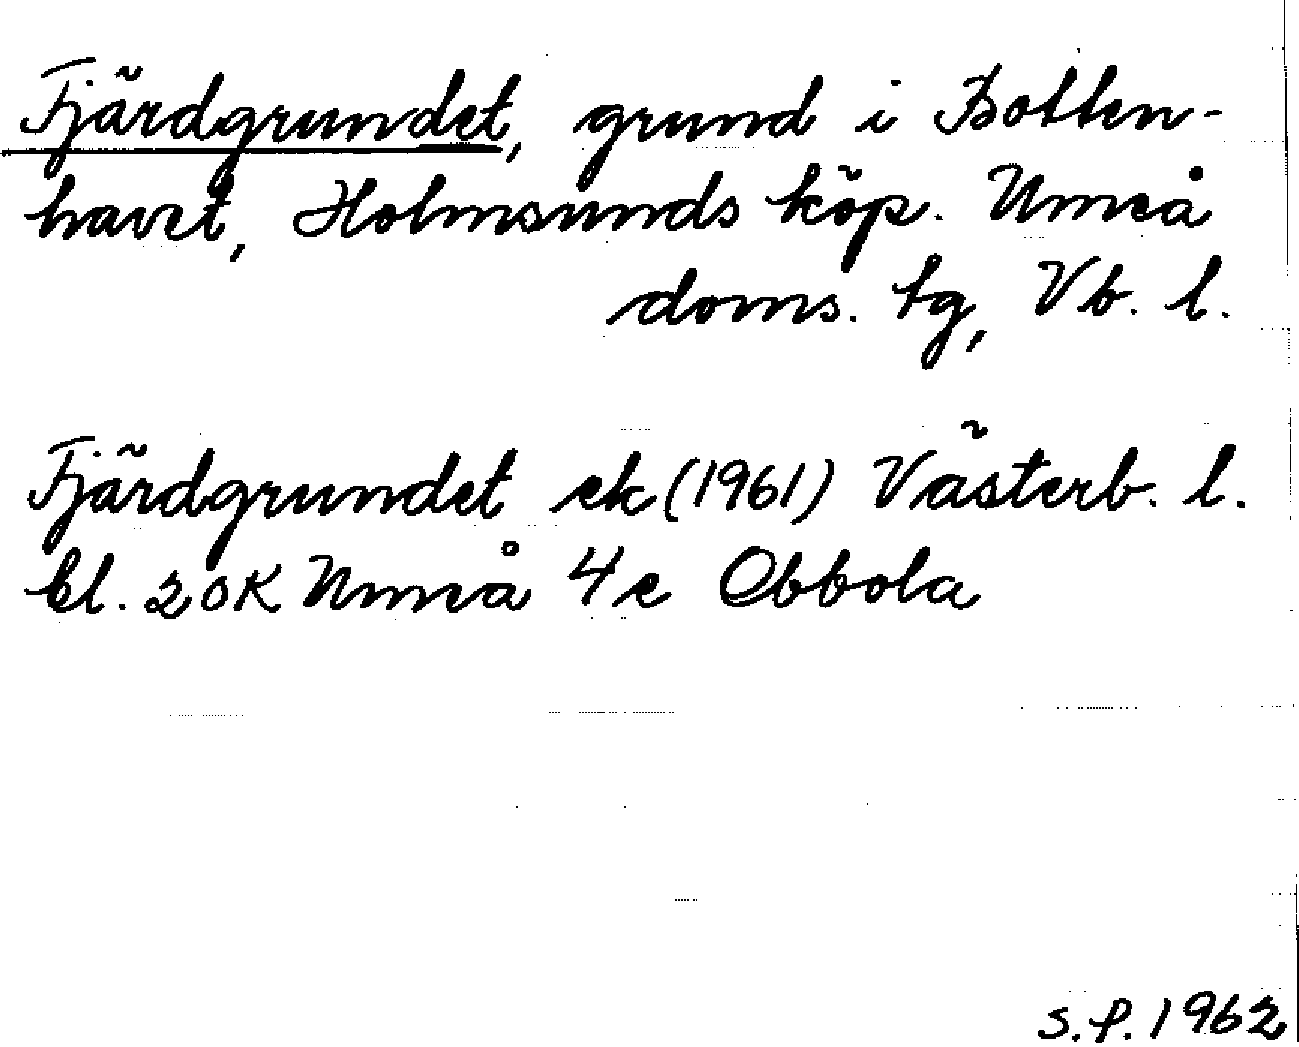 Fjärdgrundet, grund i Botten-
havet, Holmsunds köp. Umeå
doms. tg, Vb. l.
Fjärdgrundet ek (1961) Västerb. l.
bl. 20K Umeå 4e Obbola
S.P. 1962